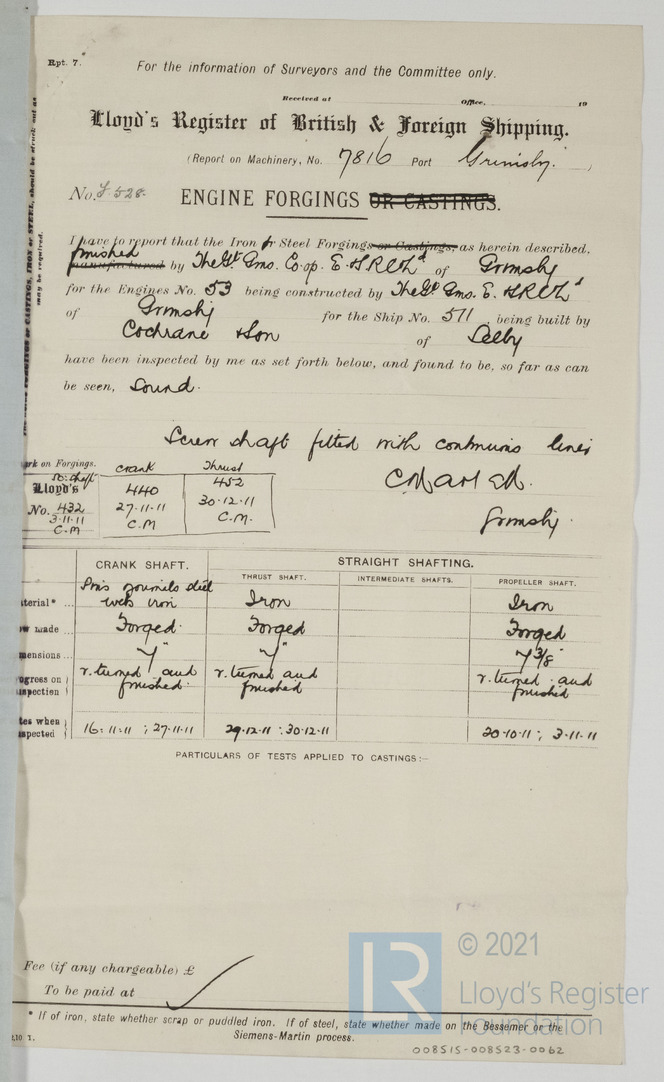 Rpt. 7.
For the information of Surveyors and the Committee only.
Received at Office, 19
Lloyd's Register of British & Foreign Shipping.
(Report on Machinery, No. 7816 Port Grimsby.)
No. 528.
ENGINE FORGINGS OR CASTINGS.
I have to report that the Iron or Steel Forgings or Castings, as herein described,
finished
manufactured by The Gt. Gms. Co-op. E. & S R Co Ld of Grimsby
for the Engines No. 53 being constructed by The Gt Gms. E. & S R Co Ld
of Grimsby for the Ship No. 571 being built by
Cochrane & Son of Selby
have been inspected by me as set forth below, and found to be, so far as can
be seen, Sound.
Screw shaft fitted with continuous liner
Grimsby.
rk on Forgings.
Sc. shaft
Lloyd's
No. 432
3-11-11
C.M
Crank
440
27-11-11
C.M
Thrust
452
30-12-11
C.M.
CRANK SHAFT.
STRAIGHT SHAFTING.
THRUST SHAFT.
INTERMEDIATE SHAFTS.
PROPELLER SHAFT.
Pins journals steel
aterial* webs iron Iron Iron
w made Forged. Forged Forged
mensions 7" 7" 7 3/8"
ogress on r. turned and r. turned and r. turned and
nspection finished. finished finished
tes when
spected 16.11.11 ; 27.11.11 29.12.11 : 30.12.11 20.10.11 ; 3.11.11
PARTICULARS OF TESTS APPLIED TO CASTINGS:—
Fee (if any chargeable) £
To be paid at
* If of iron, state whether scrap or puddled iron. If of steel, state whether made on the Bessemer or the
Siemens-Martin process.
LR
© 2021
Lloyd's Register
Foundation
008515-008523-0062